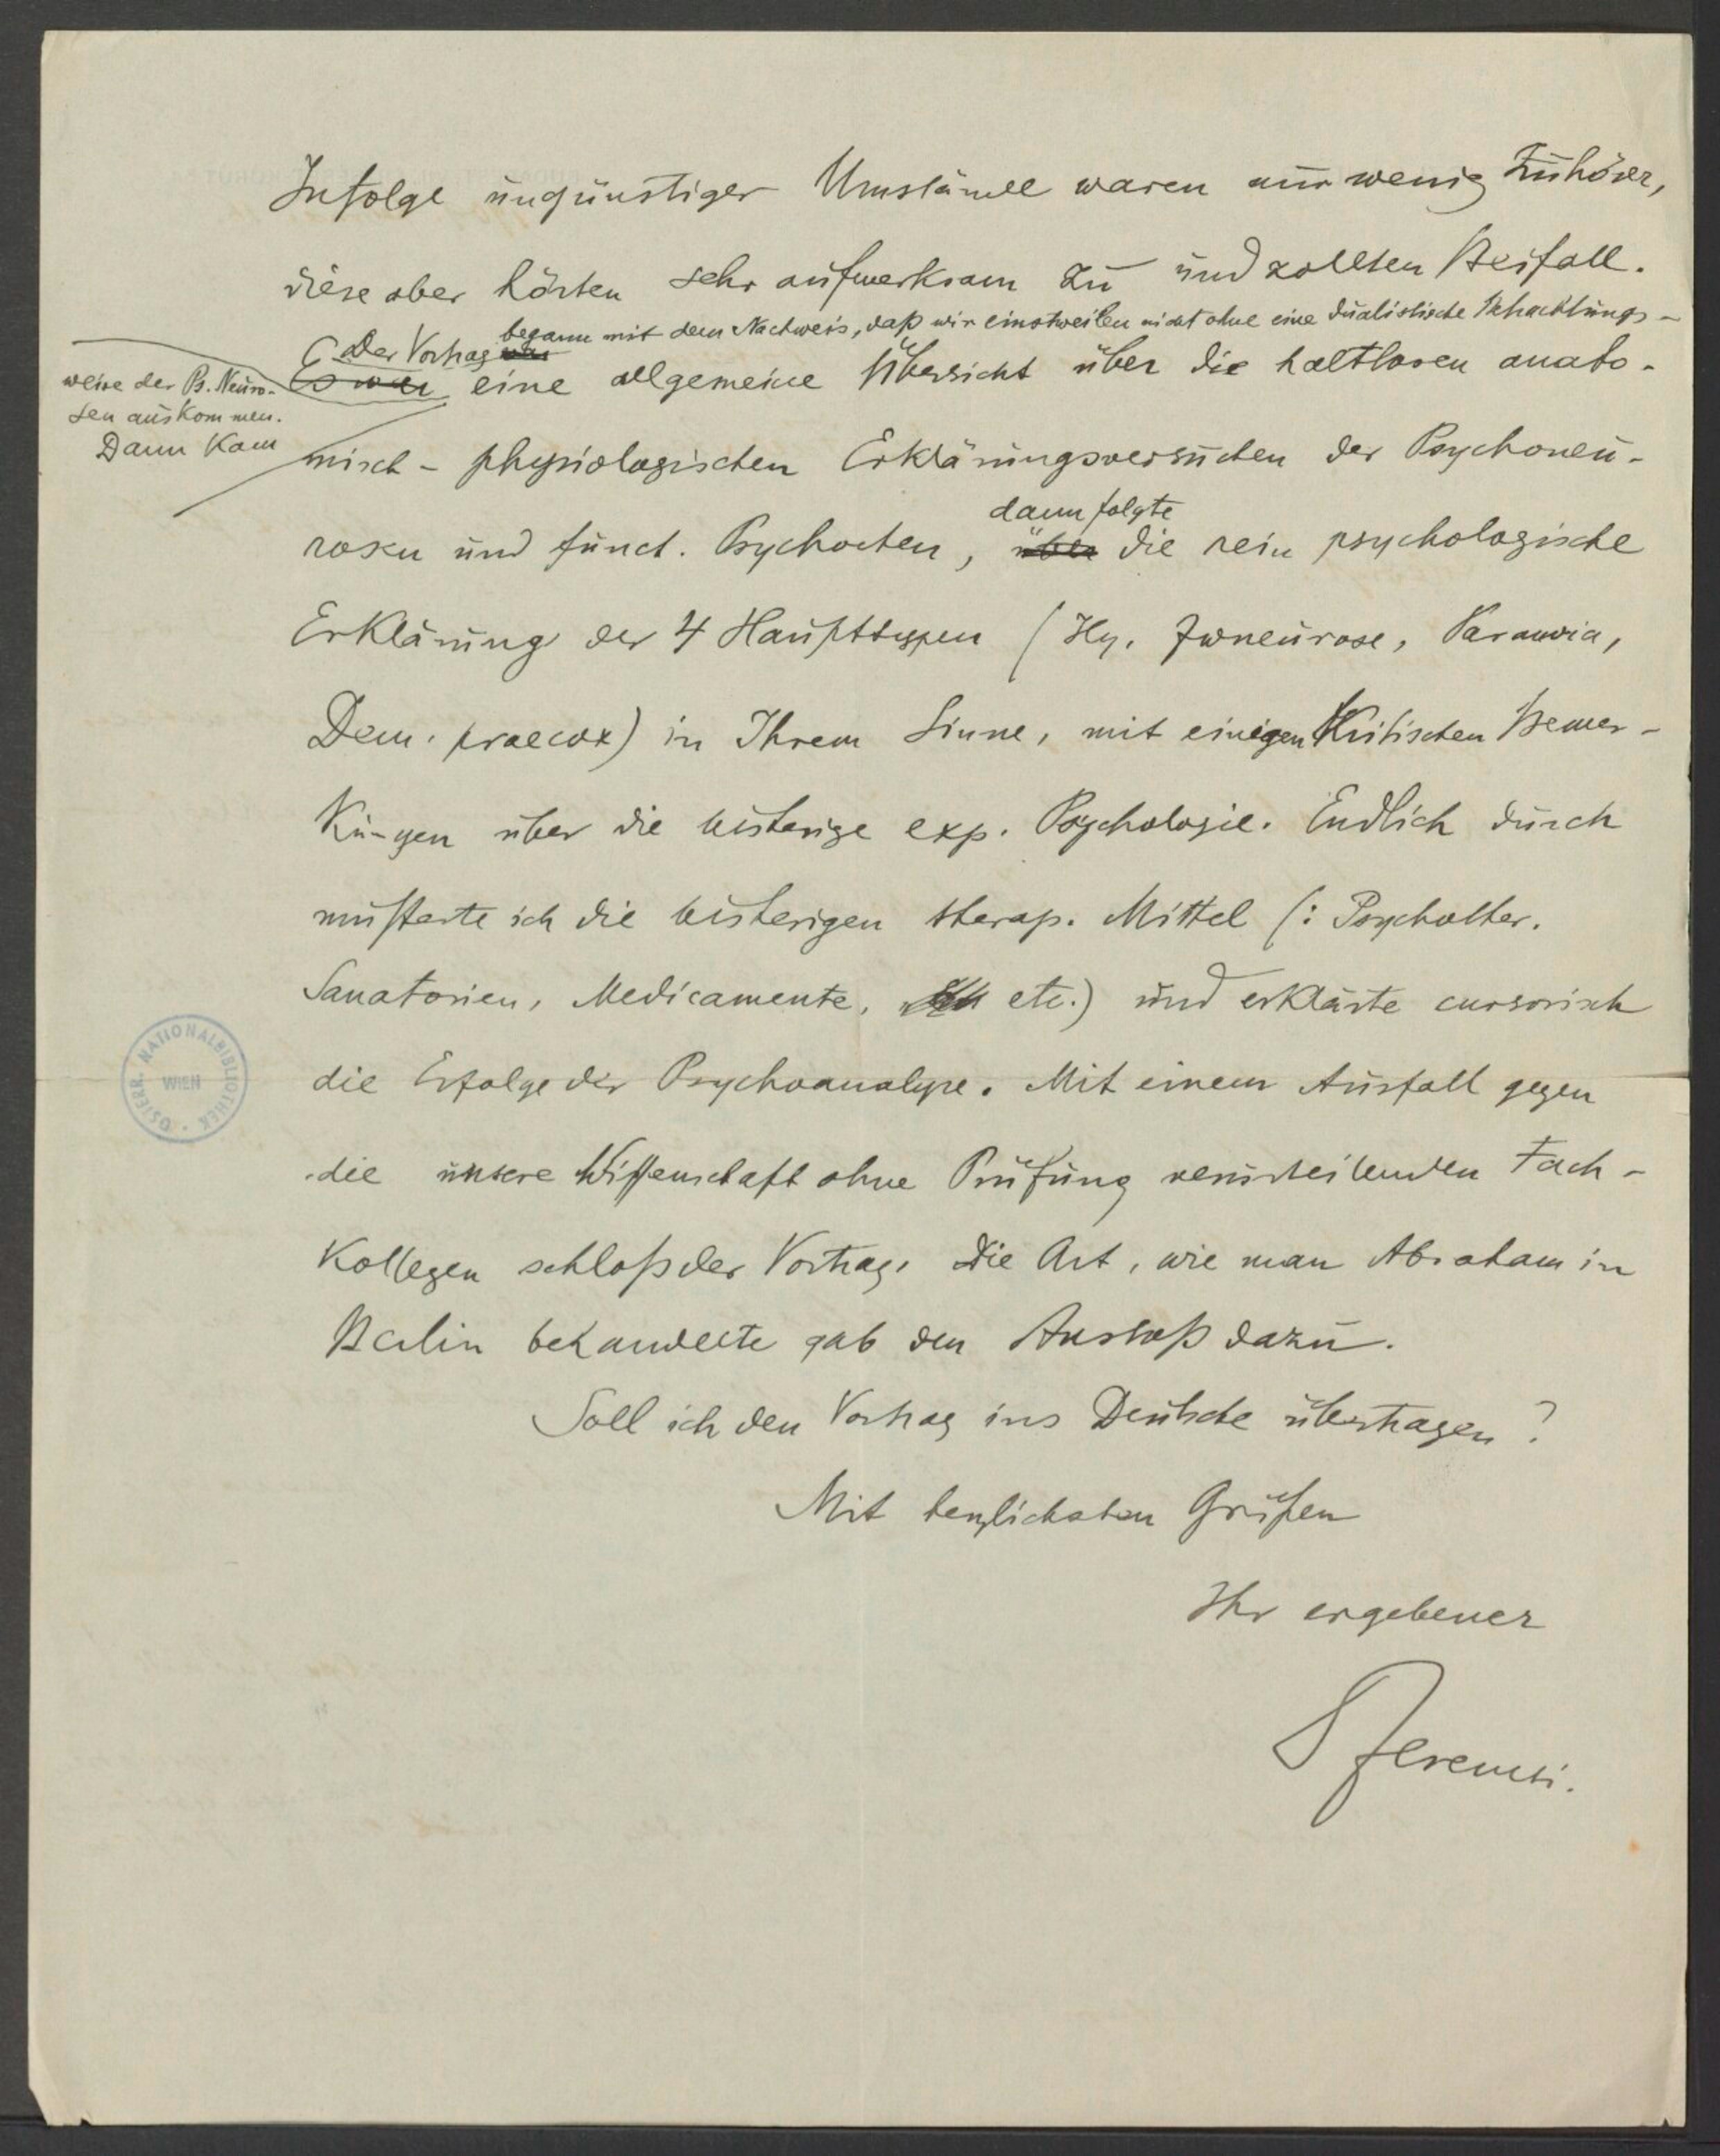 Infolge ungünstiger Umstände waren nur wenig Zuhörer,
diese aber hörten sehr aufmerksam zu und zollten Beifall.
Der Vortrag war begann mit dem Nachweis, daß wir einstweilen nicht ohne eine dualistische Betrachtungs-
weise der Ps. Neuro-
sen auskommen.
Dann kam
Es war eine allgemeine Übersicht über die haltlosen anato-
misch-physiologischen Erklärungsversuchen der Psychoneu-
rosen und funct. Psychosen, über dann folgte die rein psychologische
Erklärung der 4 Haupttypen (Hy, Zwneurose, Paranoia,
Dem. praecox) in Ihrem Sinne, mit einigen kritischen Bemer-
kungen über die bisherige exp. Psychologie. Endlich durch
musterte ich die bisherigen therap. Mittel (: Psychother.
Sanatorien, Medicamente, etc.) und erklärte cursorisch
die Erfolge der Psychoanalyse. Mit einem Ausfall gegen
die unsere Wissenschaft ohne Prüfung verurteilenden Fach-
kollegen schloß der Vortrag. Die Art, wie man Abraham in
Berlin behandelte gab den Anstoß dazu.
Soll ich den Vortrag ins Deutsche übertragen?
Mit herzlichsten Grüßen
Ihr ergebener
SFerenczi.
ÖSTERR. NATIONALBIBLIOTHEK
WIEN